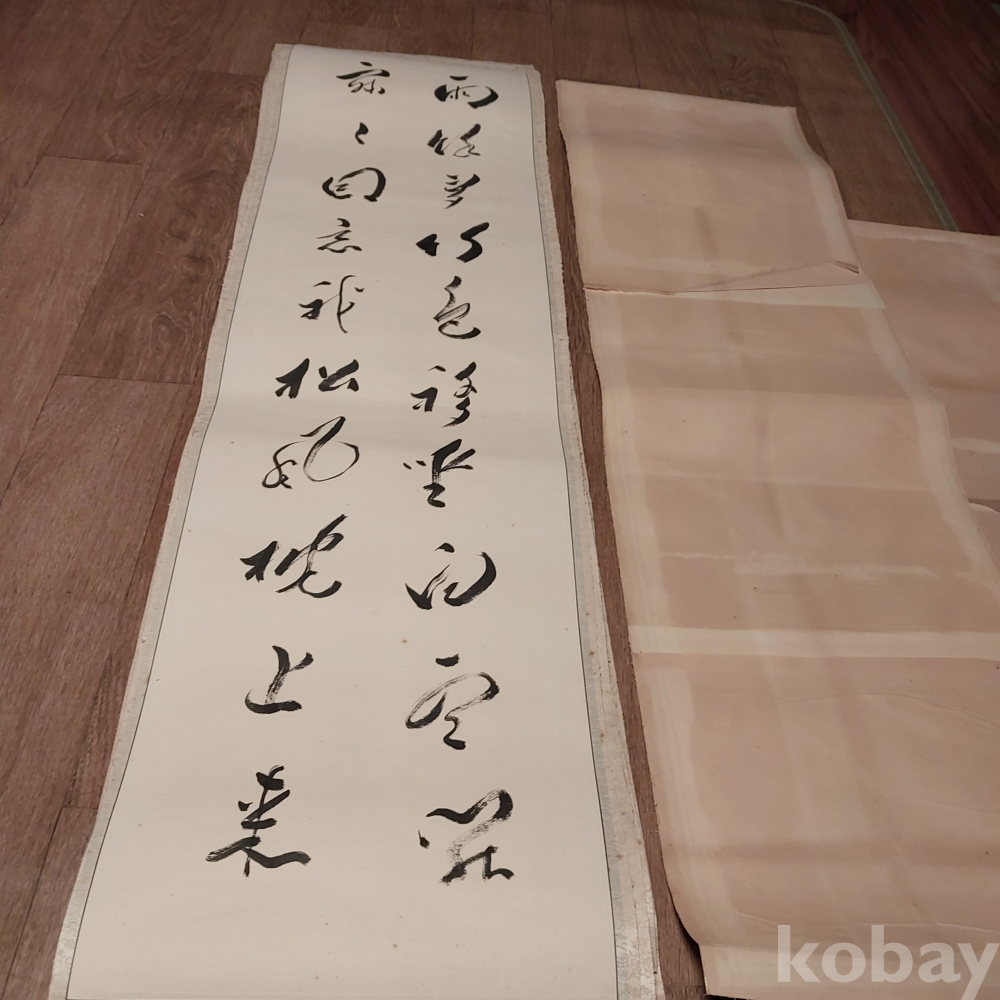 雨餘竹色移坐白雲開
寂々因忘我松風枕上来
kobay